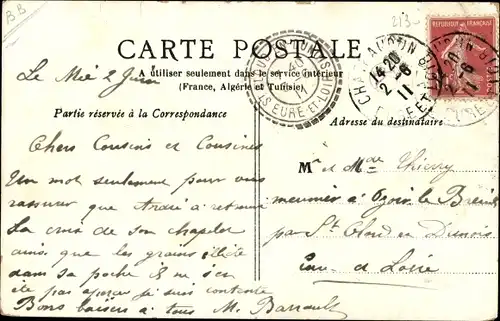 BB
213-
CARTE POSTALE
A utiliser seulement dans le service intérieur
(France, Algérie et Tunisie)
Partie réservée à la Correspondance
Adresse du destinataire
REPUBLIQUE FRANÇAISE
CHATEAUDUN
EURE-ET-LOIR
14-20
2-6
11
EURE ET LOIR
40
11
Le Mée 2 Juin
Chers Cousins et Cousines
Un mot seulement pour vous
rassurer que André a retrouvé
La croix de son chapelet
ainsi que les grains
dans sa poche il
pas je suis contente
Bons baisers à tous M. Barrault
Mr et Mde Thierry
meunier à Ozoir le Breuil
par St Cloud en Dunois
Eure et Loire